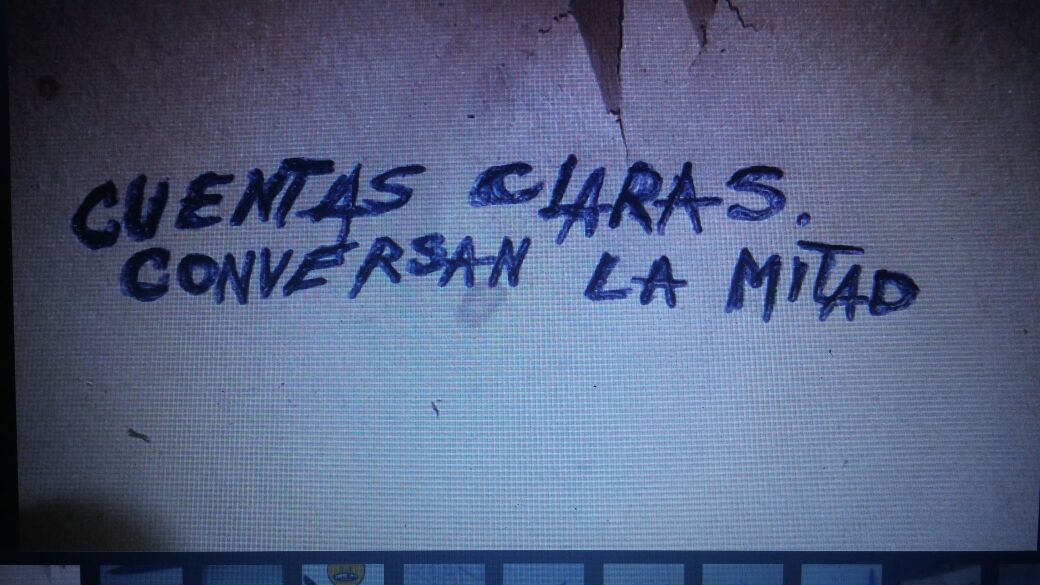 CUENTAS CLARAS.
CONVERSAN LA MITAD